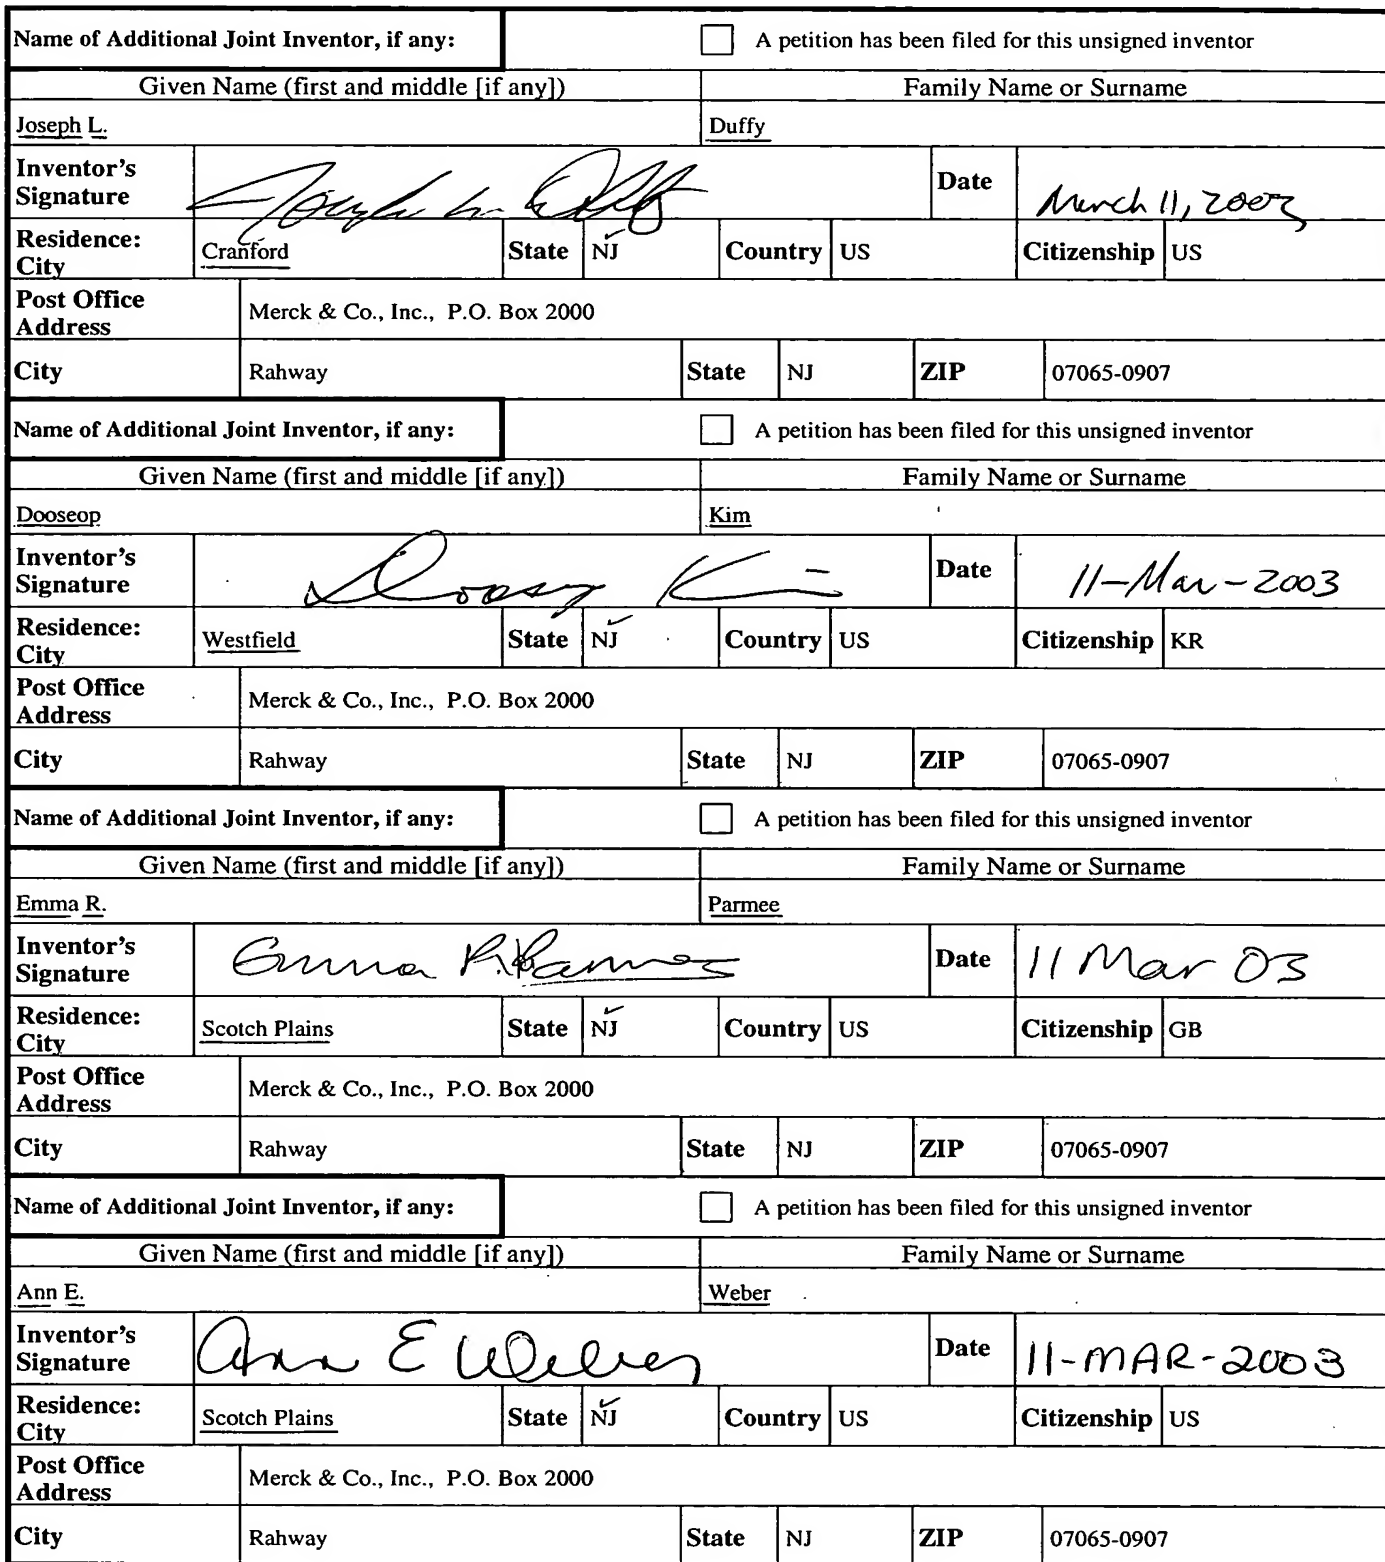 Name of Additional Joint Inventor, if any: A petition has been filed for this unsigned inventor
Given Name (first and middle [if any]) Family Name or Surname
Joseph L. Duffy
Inventor's Signature Joseph L. Duffy Date March 11, 2003
Residence: City Cranford State NJ Country US Citizenship US
Post Office Address Merck & Co., Inc., P.O. Box 2000
City Rahway State NJ ZIP 07065-0907
Name of Additional Joint Inventor, if any: A petition has been filed for this unsigned inventor
Given Name (first and middle [if any]) Family Name or Surname
Dooseop Kim
Inventor's Signature Dooseop Kim Date 11-Mar-2003
Residence: City Westfield State NJ Country US Citizenship KR
Post Office Address Merck & Co., Inc., P.O. Box 2000
City Rahway State NJ ZIP 07065-0907
Name of Additional Joint Inventor, if any: A petition has been filed for this unsigned inventor
Given Name (first and middle [if any]) Family Name or Surname
Emma R. Parmee
Inventor's Signature Emma R. Parmee Date 11 Mar 03
Residence: City Scotch Plains State NJ Country US Citizenship GB
Post Office Address Merck & Co., Inc., P.O. Box 2000
City Rahway State NJ ZIP 07065-0907
Name of Additional Joint Inventor, if any: A petition has been filed for this unsigned inventor
Given Name (first and middle [if any]) Family Name or Surname
Ann E. Weber
Inventor's Signature Ann E Weber Date 11-MAR-2003
Residence: City Scotch Plains State NJ Country US Citizenship US
Post Office Address Merck & Co., Inc., P.O. Box 2000
City Rahway State NJ ZIP 07065-0907